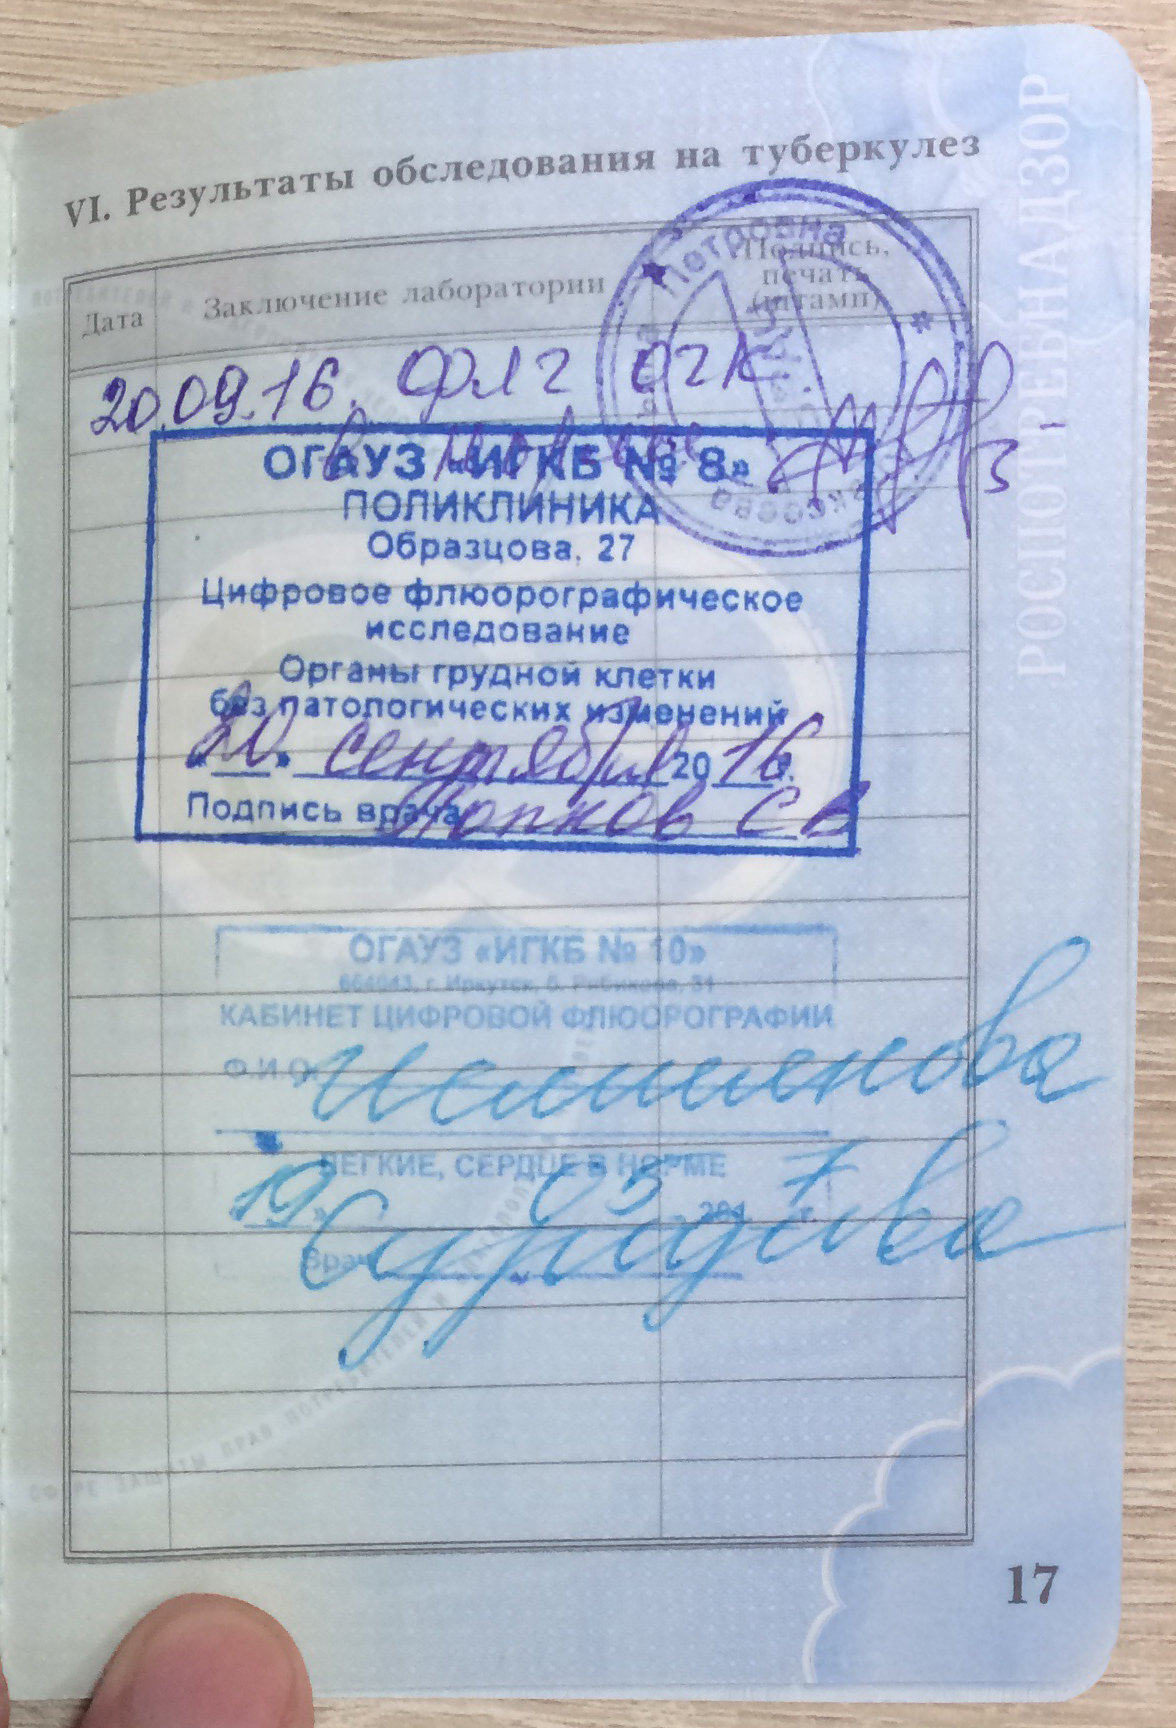 VI. Результаты обследования на туберкулез
Дата
Заключение лаборатории
Подпись,
печать
(штамп)
Петровна
20.09.16. ФЛГ ОГК
ОГАУЗ «ИГКБ № 8»
ПОЛИКЛИНИКА
Образцова, 27
Цифровое флюорографическое
исследование
Органы грудной клетки
без патологических изменений
«20» сентября 2016 г.
Подпись врача Попков СВ
ОГАУЗ «ИГКБ № 10»
664043, г. Иркутск, б. Рябикова, 31
КАБИНЕТ ЦИФРОВОЙ ФЛЮОРОГРАФИИ
Ф.И.О.
ЛЕГКИЕ, СЕРДЦЕ В НОРМЕ
19» 03 2017 г.
Врач
РОСПОТРЕБНАДЗОР
СФЕРЕ ЗАЩИТЫ ПРАВ ПОТРЕБИТЕЛЕЙ И
17